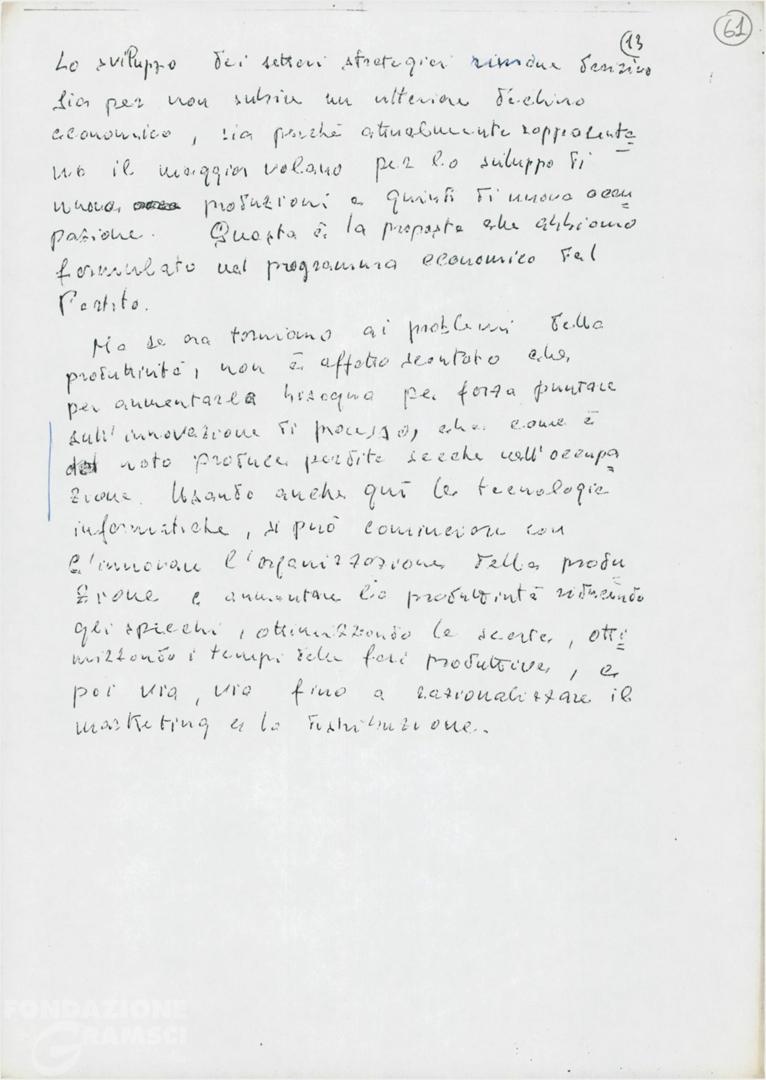 61
13
Lo sviluppo dei settori strategici rimane decisivo
sia per non subire un ulteriore declino
economico, sia perché attualmente rappresenta
no il maggior volano per lo sviluppo di
nuove produzioni e quindi di nuova occu
pazione. Questa è la proposta che abbiamo
formulato nel programma economico del
Partito.
Ma se ora torniamo ai problemi della
produttività, non è affatto scontato che
per aumentarla bisogna per forza puntare
sull'innovazione di processo, che come è
noto produce perdite secche nell'occupa
zione. Usando anche qui le tecnologie
informatiche, si può cominciare con
l'innovare l'organizzazione della produ
zione e aumentare la produttività riducendo
gli sprechi, ottimizzando le scorte, otti
mizzando i tempi delle fasi produttive, e
poi via, via fino a razionalizzare il
marketing e la distribuzione.
FONDAZIONE
GRAMSCI